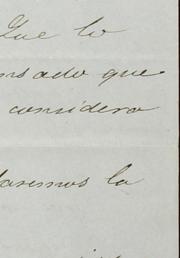 Que lo
nsado que
considera
daremos la